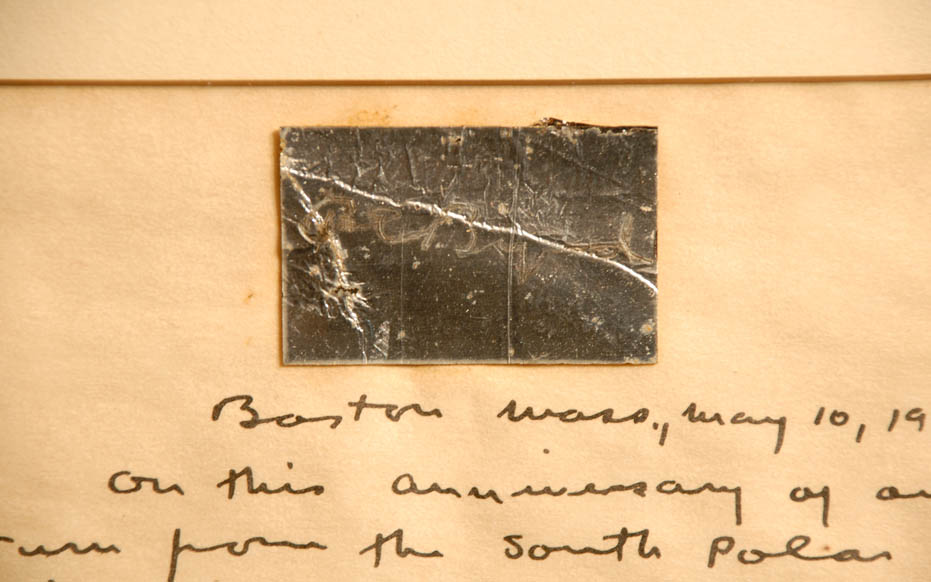 Boston Mass., May 10, 19
On this anniversary of ou
turn from the South Polar